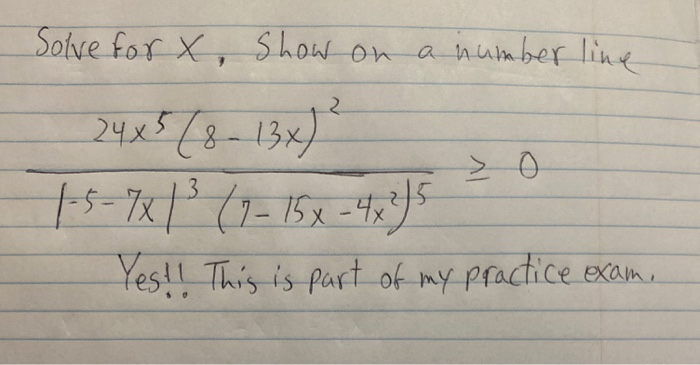 Solve for x, Show on a number line
24x⁵(8-13x)²
|-5-7x|³ (7-15x-4x²)⁵ ≥ 0
Yes!! This is part of my practice exam.